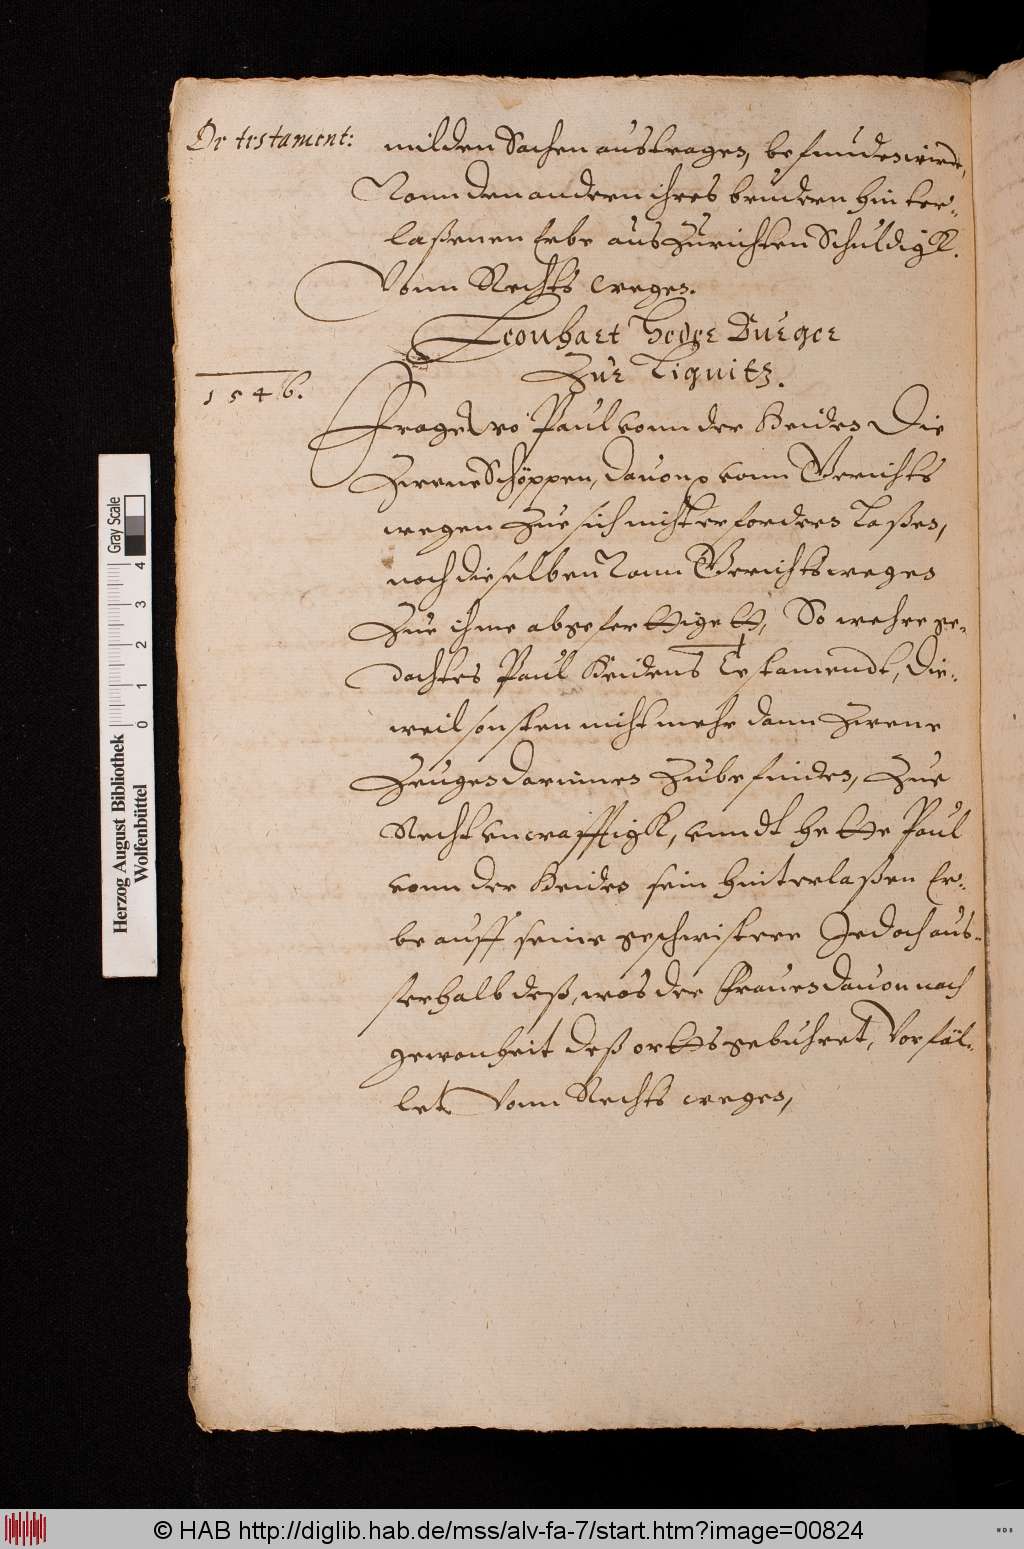 De testament:
milden Sachen außtragen, befunden wirdt,
Vonn den andern ihres brudern hinter-
laßenen Erbe auszurichten Schuldigk.
Vonn Rechts wegen.
Leonhart Burger
Zur Lignitz.
1546.
Paul vonn der Heiden Die
Zwene Schöppen, dauon vonn Gerichts
wegen Zue sich nicht erfordern laßen,
noch dieselben Vonn Gerichts wegen
Zue ihme abgefertiget, So wehre ge-
dachtes Paul Heidens Testamendt, Die-
weil sonsten nicht mehr dann Zwene
Zeugen darinnen Zubefinden, Zue
Recht vncrafftigk, vnndt hette Paul
vonn der Heiden sein hinterlaßen Er-
be auff seine geschwistere Jedoch aus-
serhalb deß, was der Frauen dauon nach
gewonheit deß ortts gebuhret, Vorfäl-
let. Vonn Rechts wegen,
Herzog August Bibliothek
Wolfenbüttel
Gray Scale
0 1 2 3 4
© HAB http://diglib.hab.de/mss/alv-fa-7/start.htm?image=00824